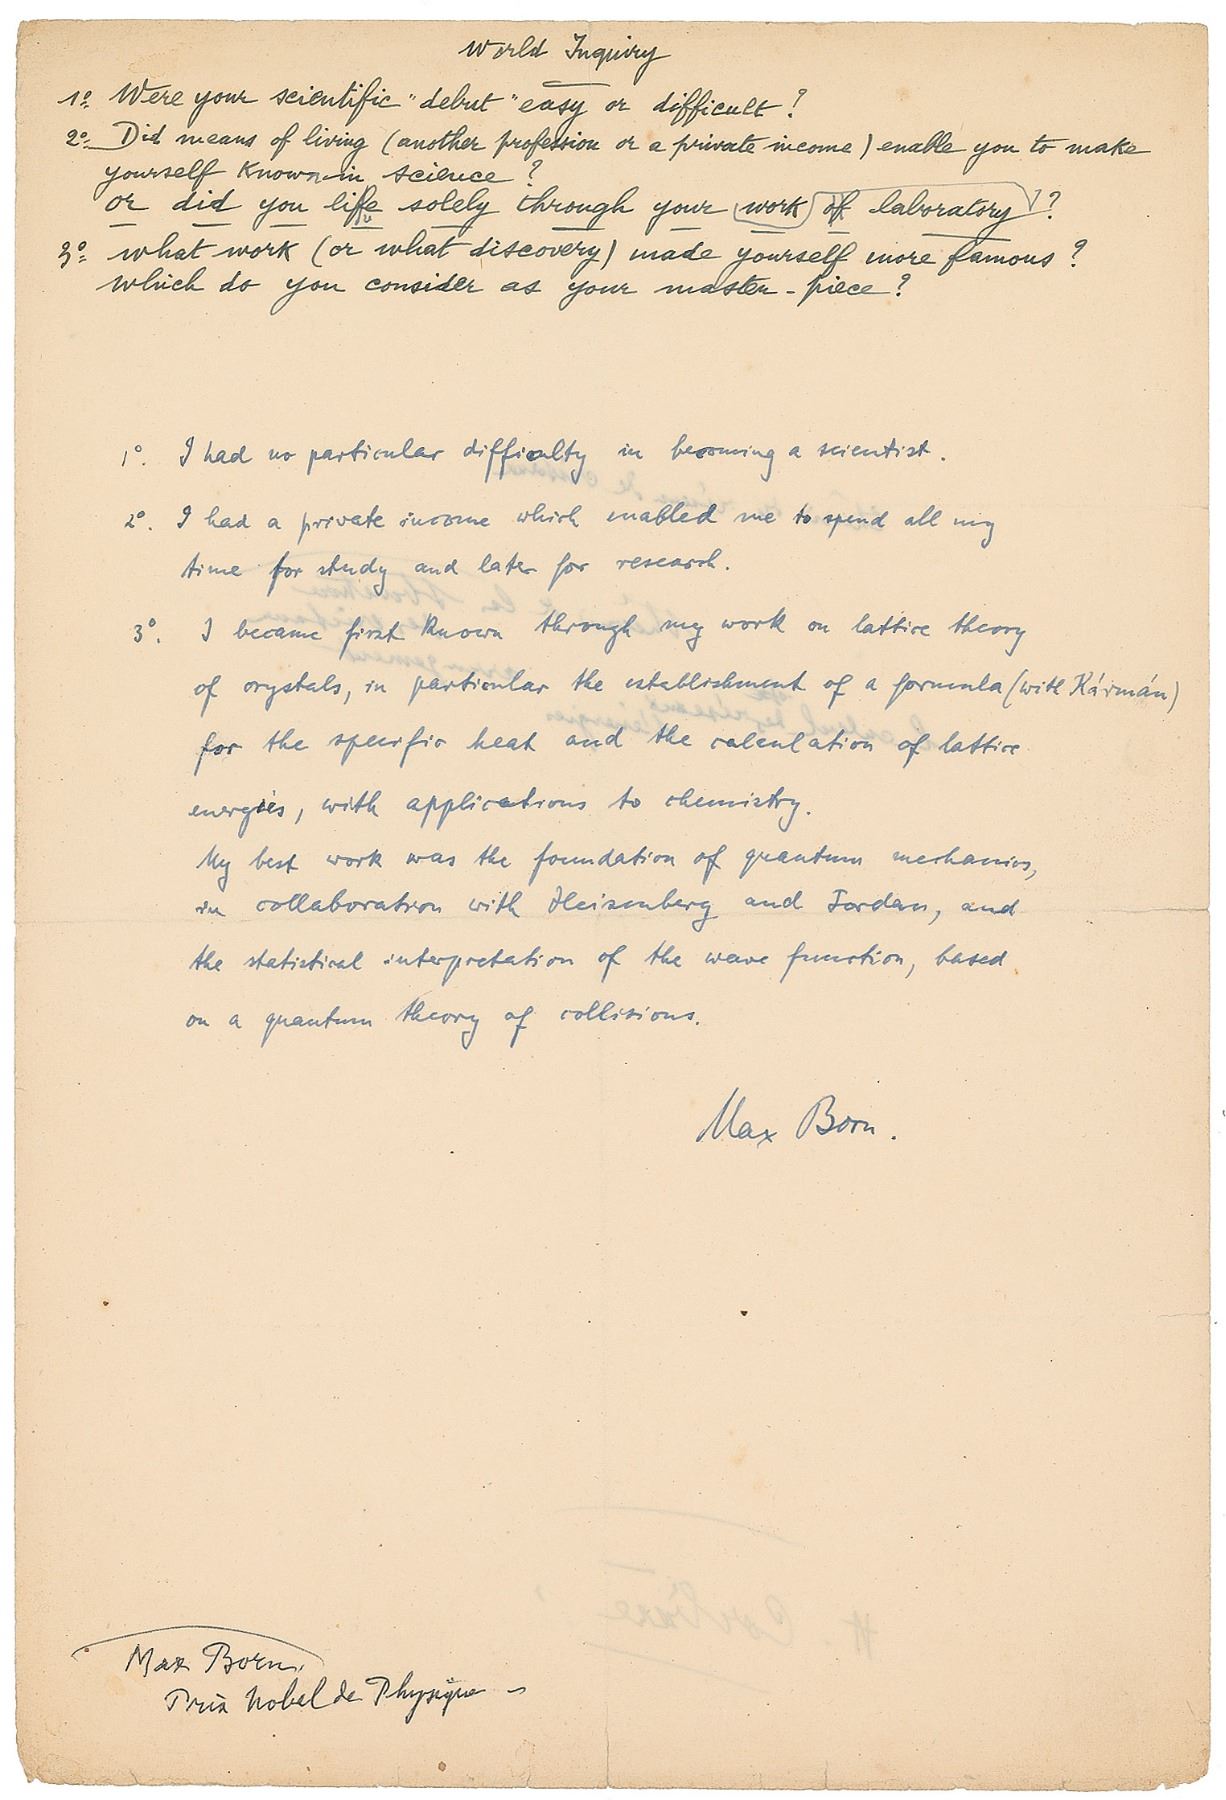 World Inquiry
1º Were your scientific "debut" easy or difficult?
2º Did means of living (another profession or a private income) enable you to make
yourself known in science?
or did you life solely through your work of laboratory?
3º what work (or what discovery) made yourself more famous?
which do you consider as your master-piece?
1º. I had no particular difficulty in becoming a scientist.
2º. I had a private income which enabled me to spend all my
time for study and later for research.
3º. I became first known through my work on lattice theory
of crystals, in particular the establishment of a formula (with Kármán)
for the specific heat and the calculation of lattice
energies, with applications to chemistry.
My best work was the foundation of quantum mechanics,
in collaboration with Heisenberg and Jordan, and
the statistical interpretation of the wave function, based
on a quantum theory of collisions.
Max Born.
Max Born.
Prix Nobel de Physique